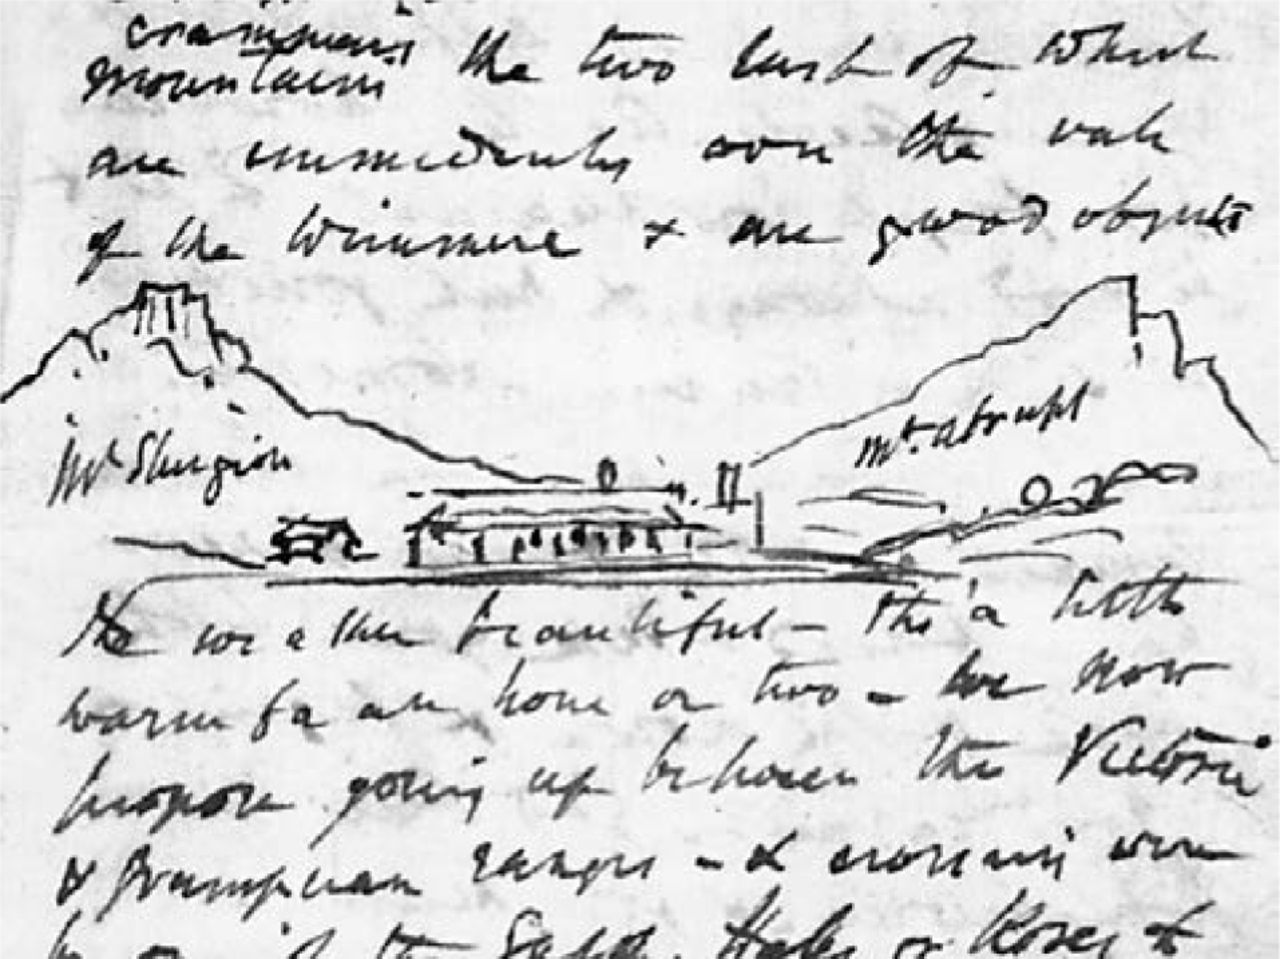 Grampians
mountains the two last of which
are immediately over the vale
of the Wimmera + are good objects
Mt Sturgion
Mt. abrupt
The weather beautiful - tho' a little
warm for an hour or two - we now
propose going up between the Victoria
& Grampian ranges - & crossing over
the or